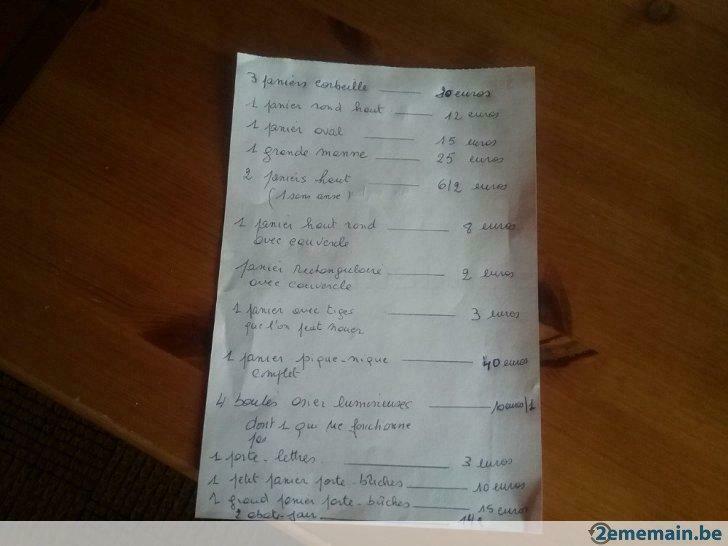 3 paniers corbeille —— 30 euros
1 panier rond haut —— 12 euros
1 panier oval —— 15 euros
1 grande manne —— 25 euros
2 paniers haut —— 6/2 euros
(1 sans anse)
1 panier haut rond —— 8 euros
avec couvercle
panier rectangulaire —— 2 euros
avec couvercle
1 panier avec tiges —— 3 euros
que l'on peut nouer
1 panier pique-nique —— 40 euros
complet
4 boules osier lumineuses —— 10 euros/1
dont 1 qui ne fonctionne
pas
1 porte-lettres —— 3 euros
1 petit panier porte-bûches —— 10 euros
1 grand panier porte-bûches —— 15 euros
2 abat-jour ——
2ememain.be